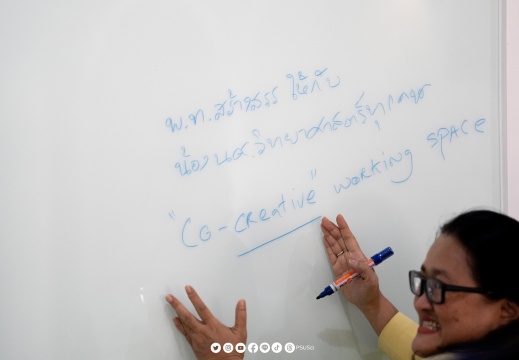 พ.ท.สร้างสรร ให้กับ
น้องนศ.วิทยาศาสตร์ทุกคน
"Co-creative" working space
PSUSci